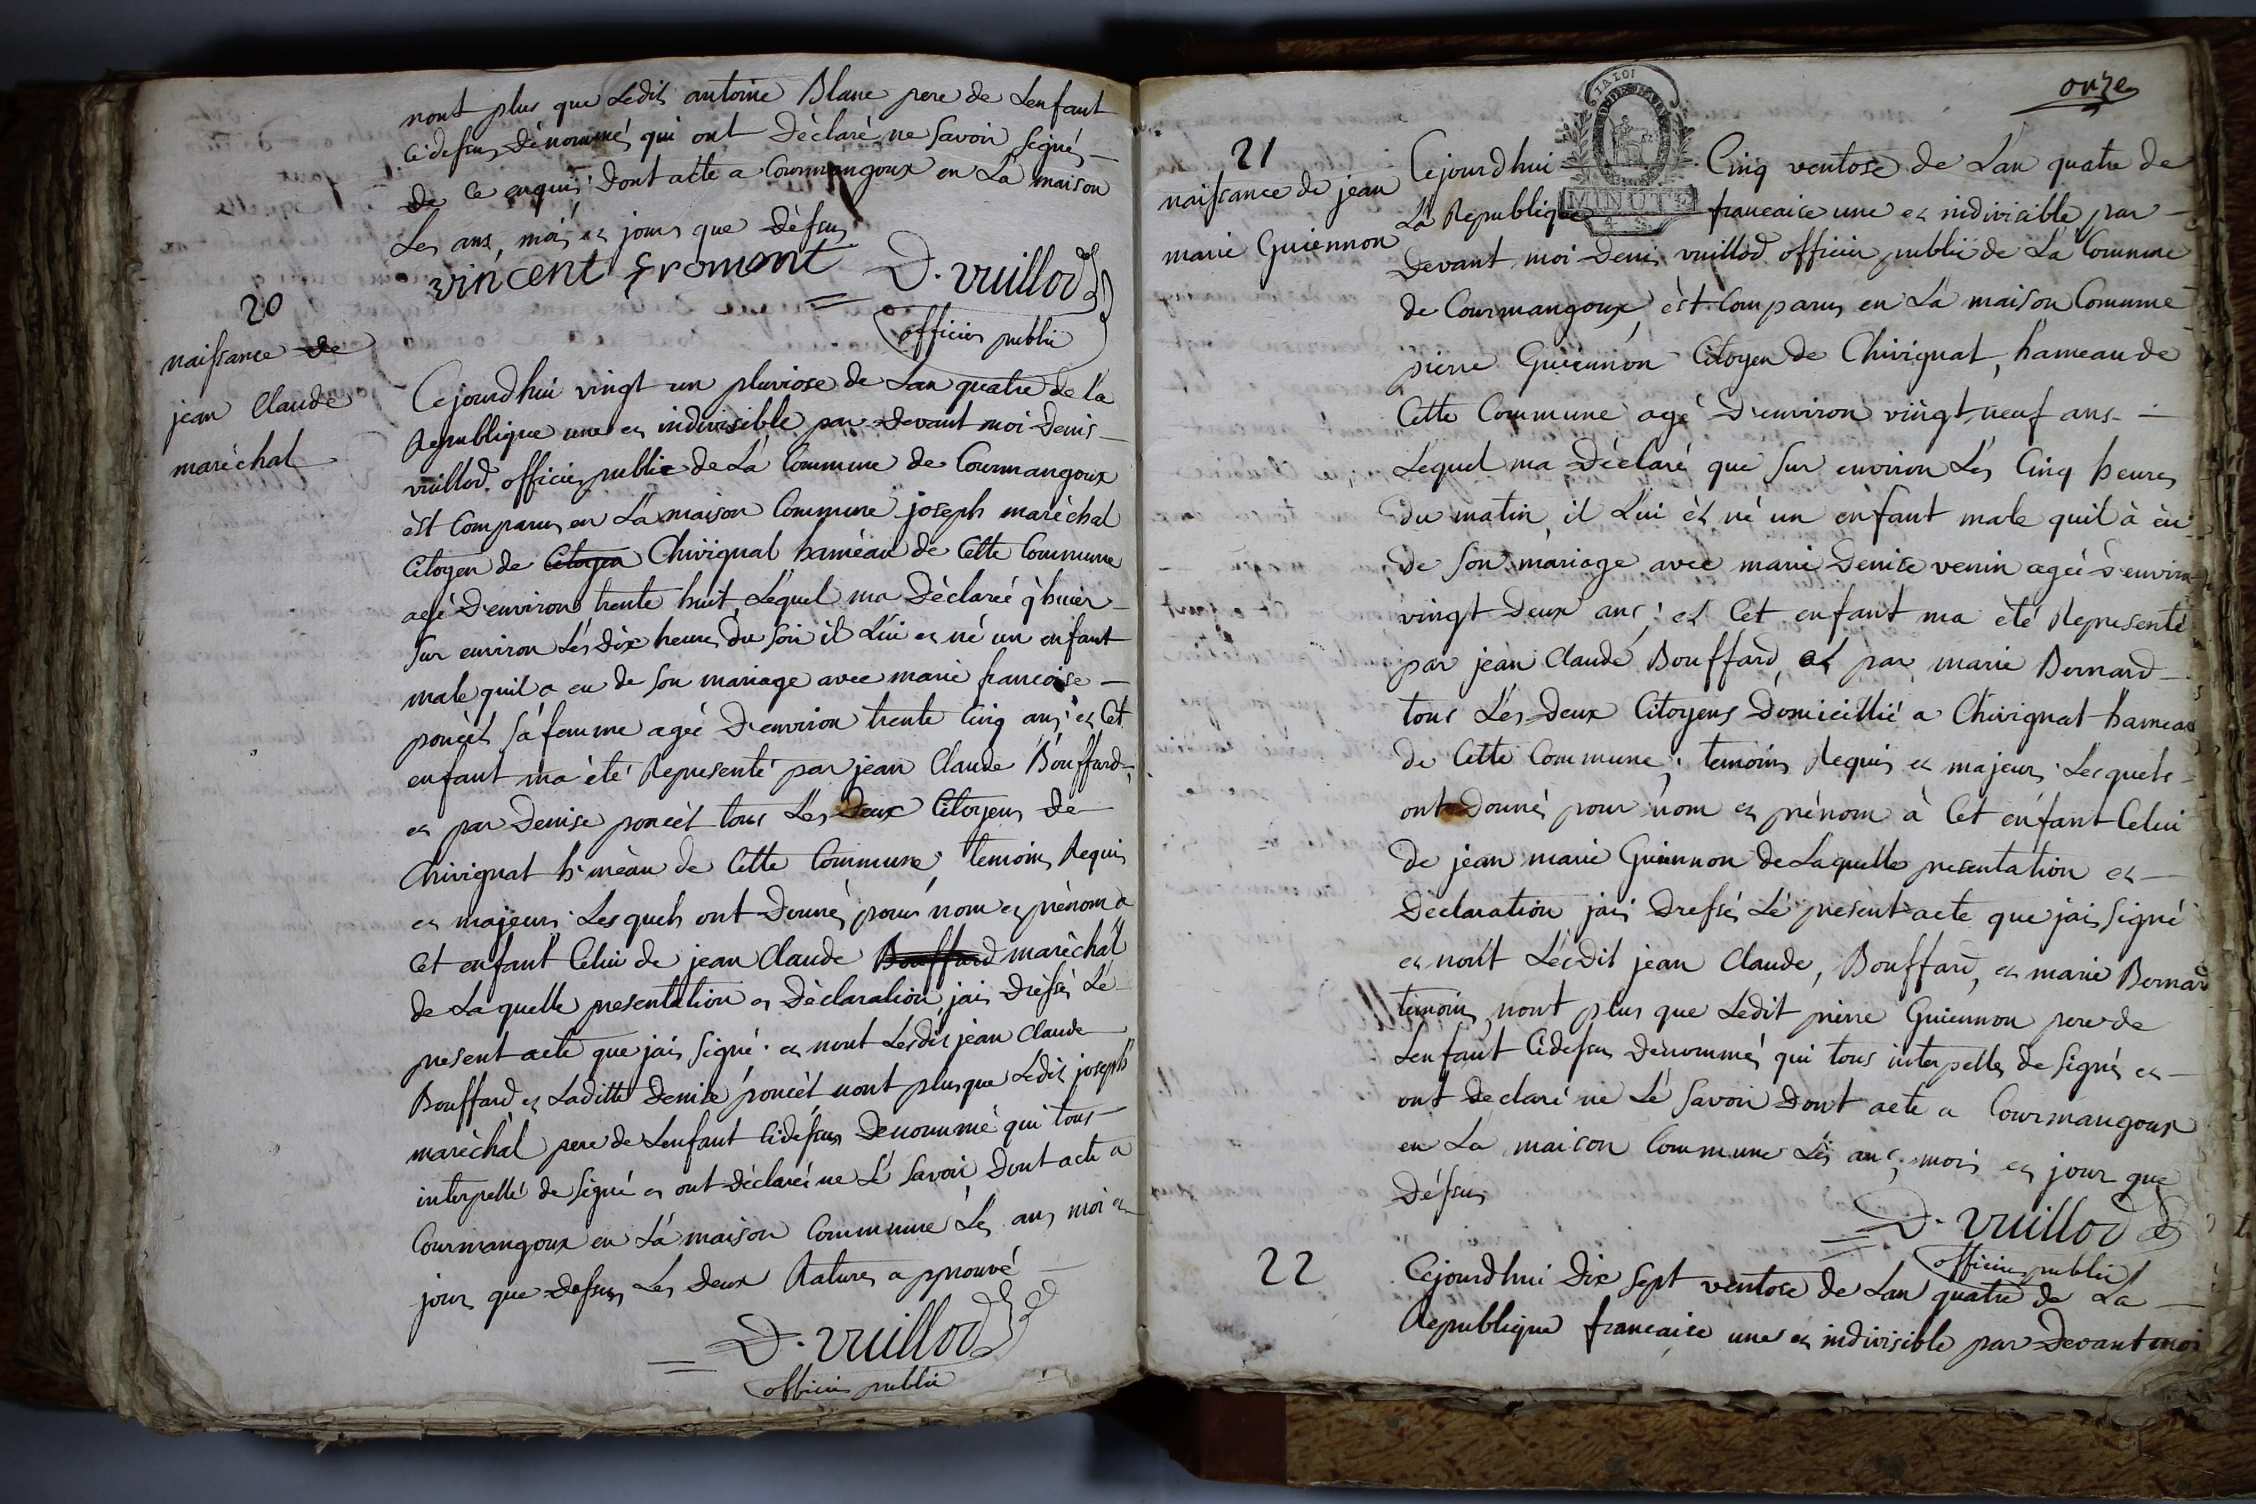 nont plus que Ledit antoine Blanc pere de Lenfant
cidessus dénommés qui ont déclaré ne Savoir Signés
de ce enquis; dont acte a Courmangoux en La maison
Les ans, mois et jours que dèssus
vincent fromont D. vuillod
officier public
20
naissance de
jean Claude
maréchal
Cejourdhui vingt un pluviose de Lan quatre de la
Republique une et indivisible par devant moi Denis
vuillod officier public de La Commune de Courmangoux
èst Comparus en La maison Commune joseph maréchal
Citoyen de Citoyen Chivignat haméau de Cette Commune
agé D'environ trente huit, Léquel ma Déclareé q'huier
Sur environ Lés Dix heures du Soir il Lui et né un enfant
male quil a eu de Son mariage avec marie francoise
poncèt Sa femme agée D'environ trente Cinq ans; et Cet
enfant ma été Representé par jean Claude Bouffard,
et par Denise poncèt tous Les Deux Citoyens de
Chivignat h'mèau de Cette Commune; temoins Requis
et majeurs; Lesquels ont Donnés pour nom et prénom a
Cet enfant Celui de jean Claude Bouffard maréchal
de Laquelle presentation et Déclaration jais Dréssés Lé
present acte que jais Signé. et nont Lesdit jean Claude
Bouffard et Laditte Denise poncèt nont plus que Ledit joseph
maréchal pere de Lenfant Cidessus Denommé qui tous
interpellé de Signé et ont déclarés ne Lé Savoir Dont acte a
Courmangoux en La maison Commune Lés ans moi et
jours que dessus Les Deux Ratures approuvé
D. vuillod
officier public
onze
LA LOI
MINUTE
21
naissance de jean
marie Guiennon
Cejourdhui Cinq ventose de Lan quatre de
La Republique francaise une et indivisible par
Devant moi Denis vuillod officier public de La Commune
de Courmangoux, èst Comparus en La maison Comune
pierre Guiennon Citoyen de Chivignat, hameau de
Cette Commune agé D'environ vingt neuf ans
Lequel ma Déclaré que Sur environ Lés Cinq heures
du matin il Lui èt né un enfant male quil à èu
de Son mariage avec marie Denise venin ageé D'environ
vingt Deux ans; et Cet enfant ma été Representé
par jean Claude Bouffard, et par marie Bernard
tous Lés Deux Citoyens Domicillié a Chivignat hameau
de Cette Commune; temoins Requis et majeurs; Lesquels
ont Donnés pour nom et prénom à Cet enfant Celui
de jean marie Guiennon de Laquelle presentation et
Déclaration jais Dressés Lé present acte que jais Signé
et nont Lésdit jean Claude, Bouffard, et marie Bernard
temoins nont plus que Ledit pierre Guiennon pere de
Lenfant Cidessus Dénommés qui tous interpellés de Signés et
ont declaré ne Lé Savoir Dont acte a Courmangoux
en La maison Commune Lés ans, mois et jour que
Déssus
D. vuillod
officier public
22
Cejourdhui Dix Sept ventose de Lan quatre de La
Republique francaise une et indivisible par Devant moi